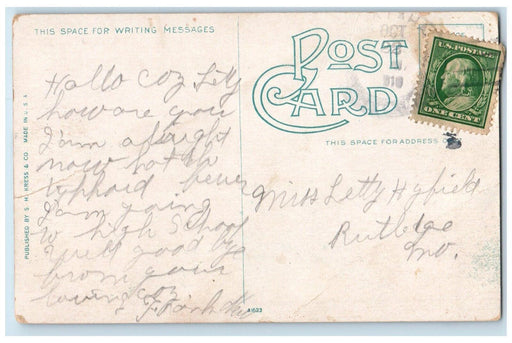 THIS SPACE FOR WRITING MESSAGES
POST
CARD
THIS SPACE FOR ADDRESS
U.S. POSTAGE
ONE CENT
OCT
PUBLISHED BY S. H. KRESS & CO. MADE IN U.S.A.
Hallo Coz Letty
how are you
I am alright
now
typhoid fever
I am going
to high School
Well good by
from your
loving coz
Miss Letty Hyfield
Rutledge
Mo.